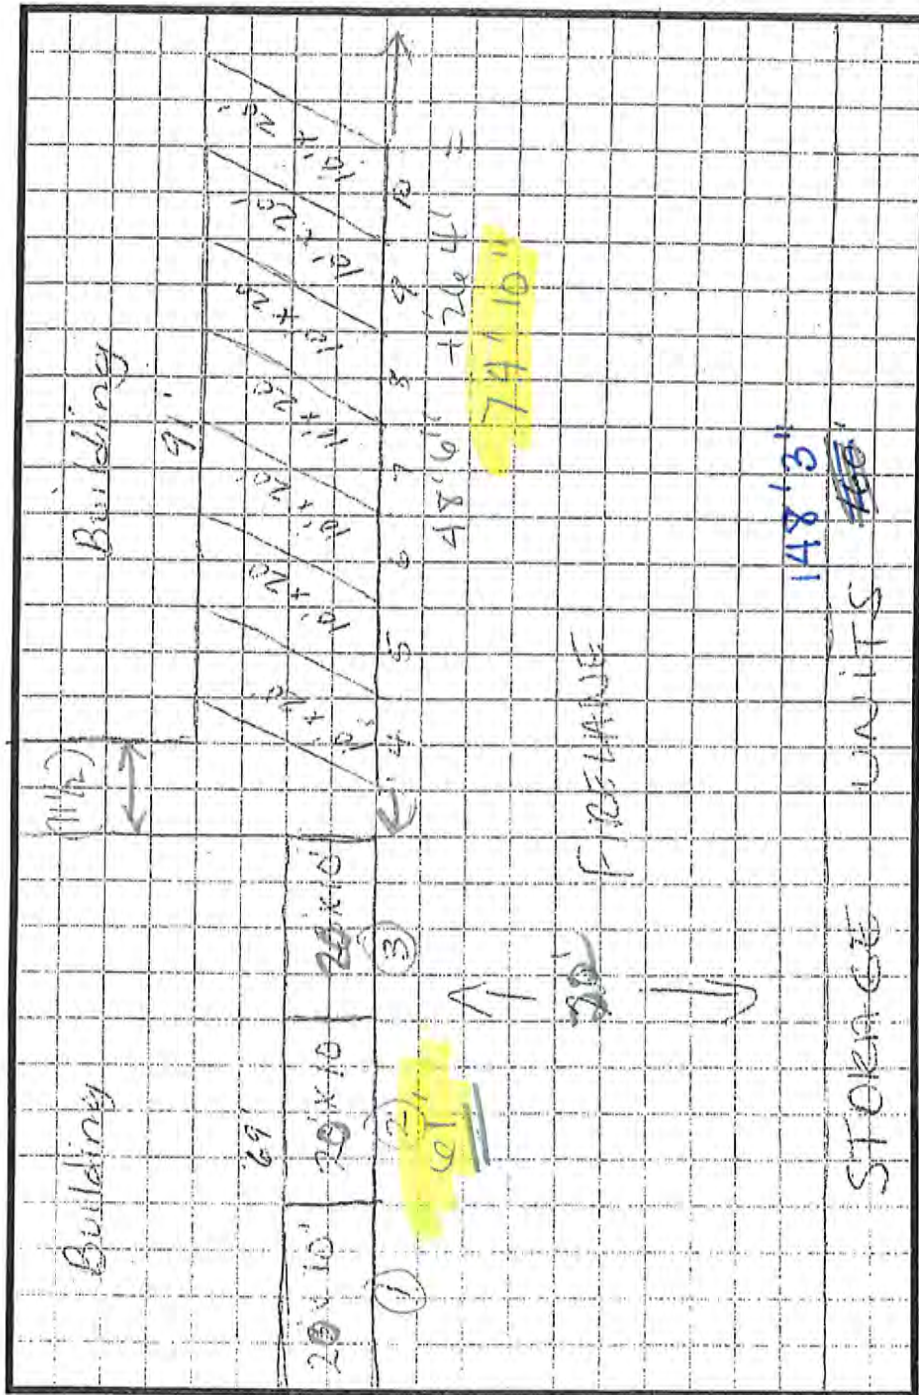 Building
69'
Building
91'
(11½)
20' x 10'
20' x 10'
20' x 10'
10' x 20'
10' x 20
10' x 20'
11' x 20
10' x 20
10' x 20'
10' x 20'
1
2
3
4
5
6
7
8
9
10
61'
48'6" + 26'4" =
74'10"
20' FIRELANE
148'3"
STORAGE UNITS